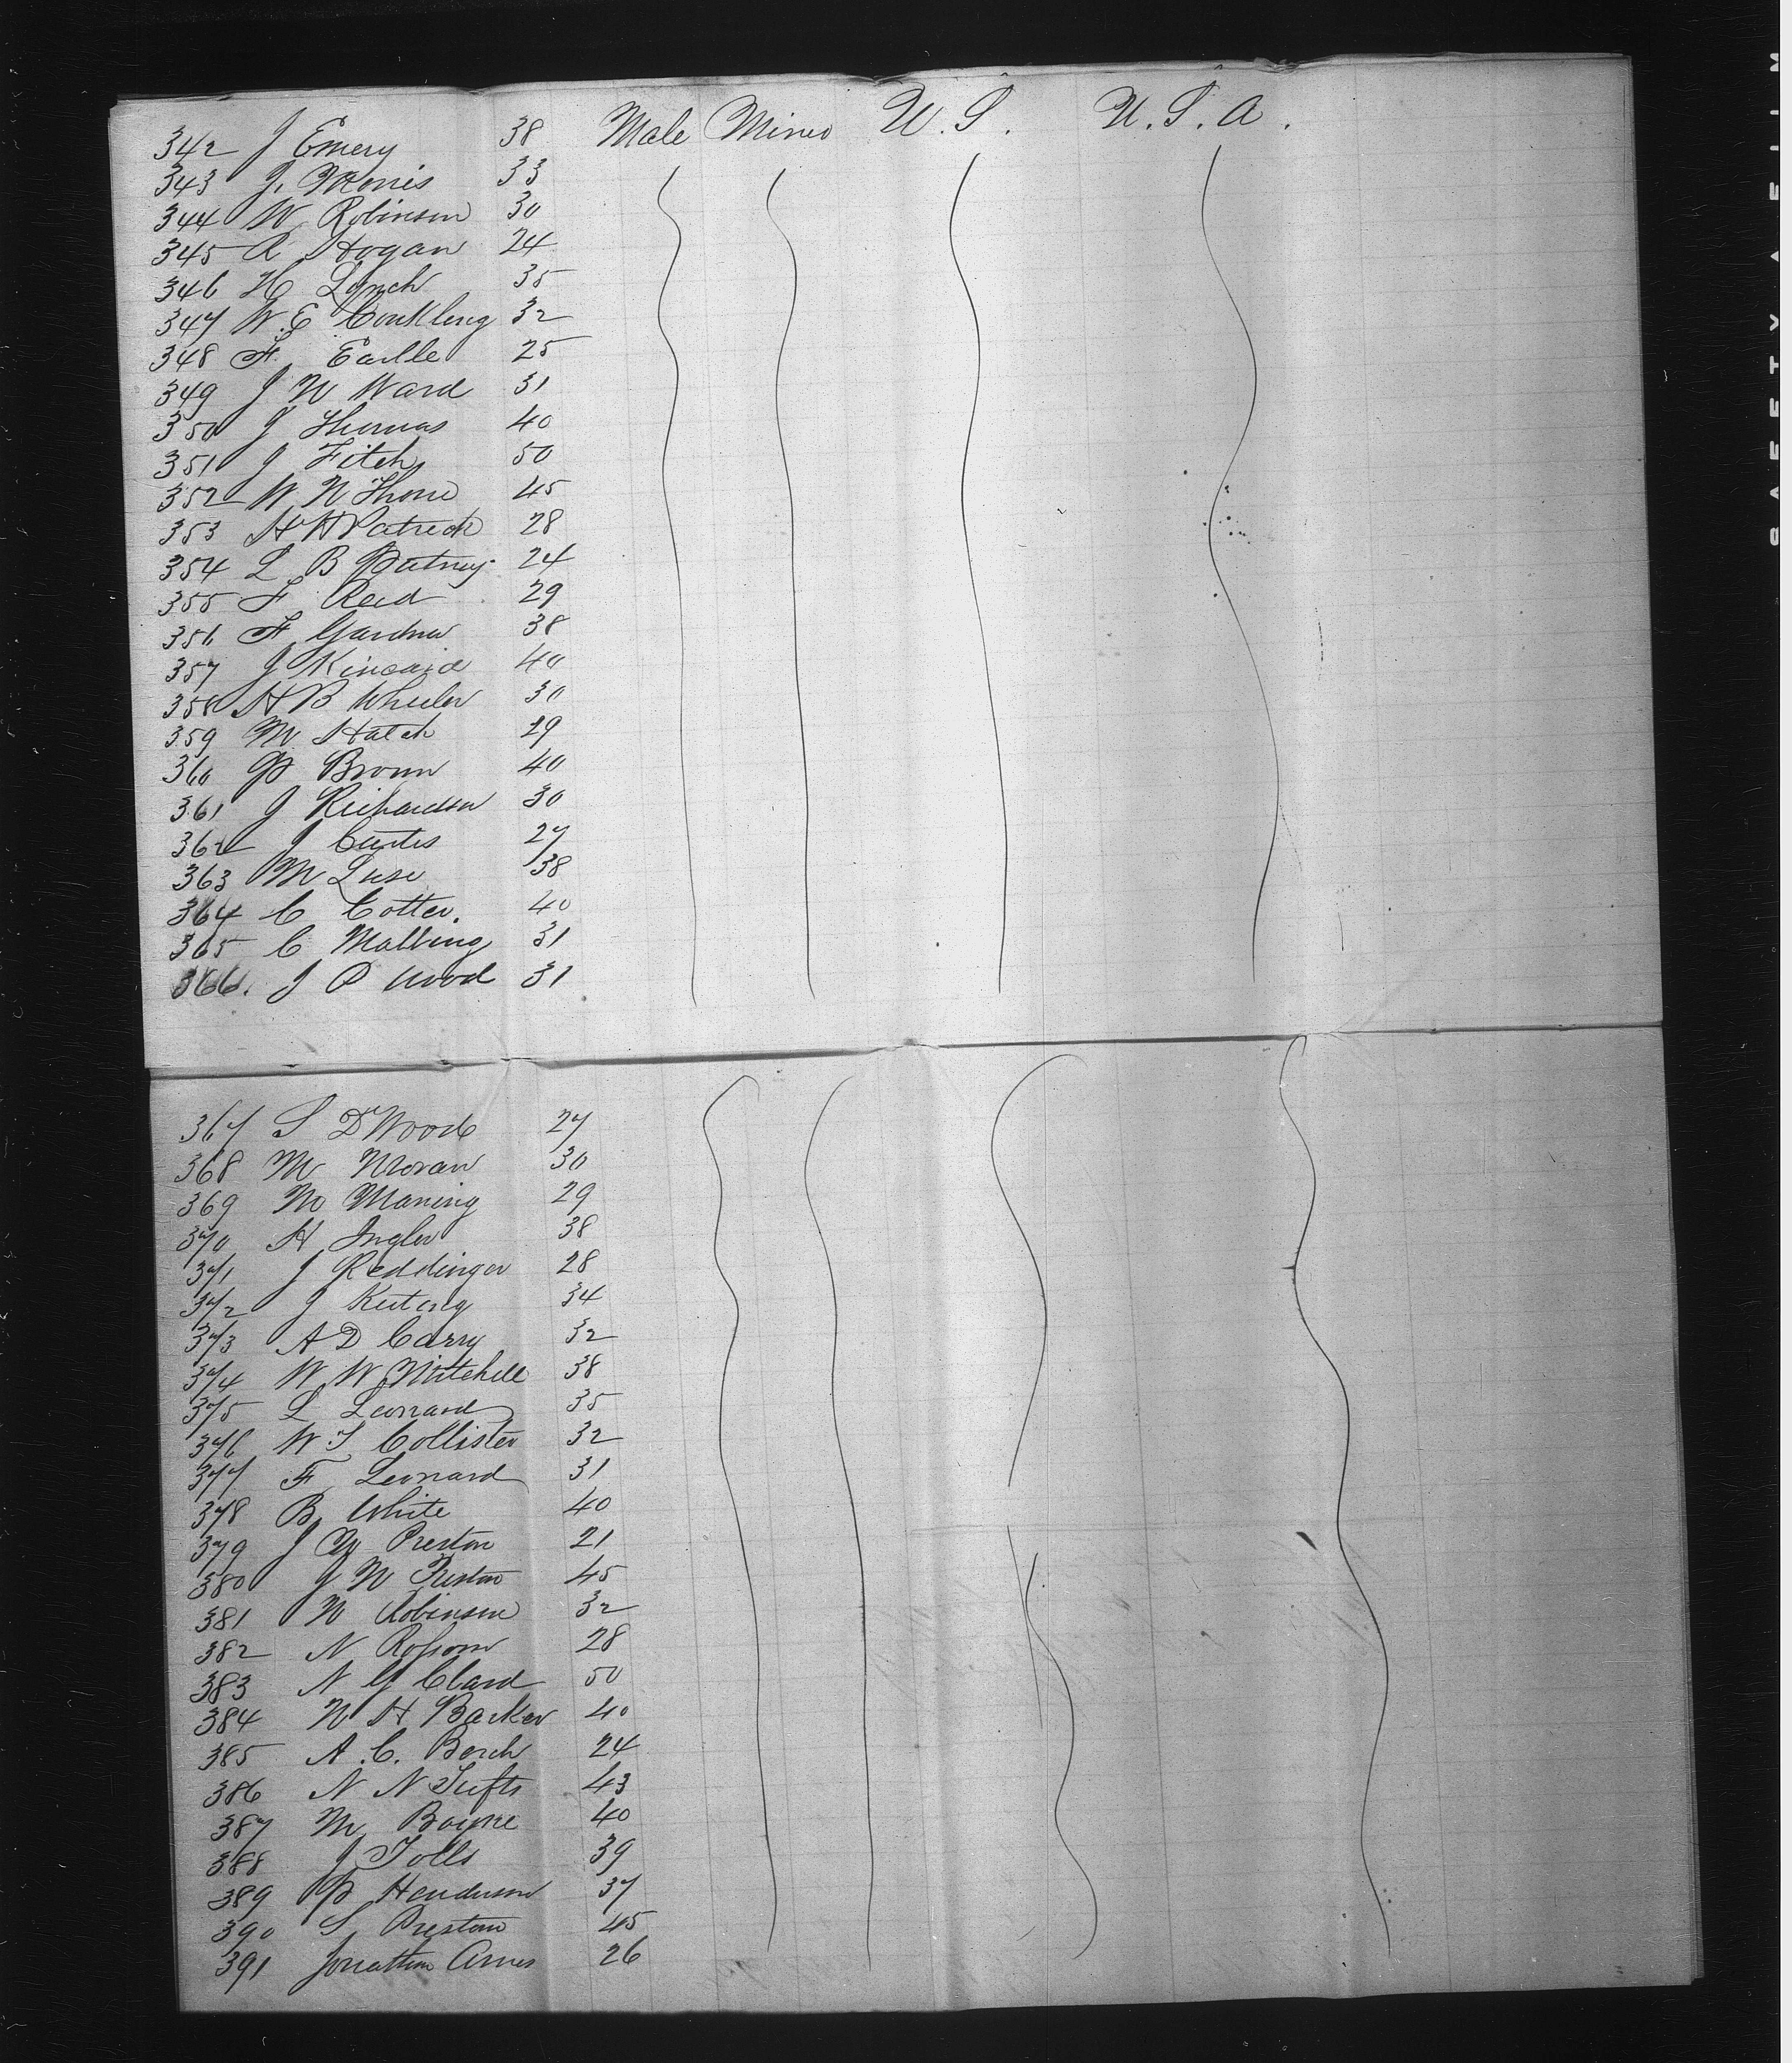 342 J Emery 38 Male Miner U.S. U.S.A.
343 J. Morris 33
344 W Robinson 30
345 A Hogan 24
346 H Lynch 35
347 W.E Conkling 32
348 F. Earlle 25
349 J W Ward 31
350 J Thomas 40
351 J Fitch 50
352 W N Thorne 45
353 H H Patrick 28
354 L B Putney 24
355 F Reed 29
356 F Gardner 38
357 J Kincaid 40
358 H B Wheeler 30
359 M Hatch 29
360 G Brown 40
361 J Richardson 30
362 J Curtis 27
363 M Luse 38
364 C Cotter. 40
365 C Malling 31
366. J P Wood 31
367 S D Wood 27
368 M Moran 30
369 M Maning 29
370 H Ingler 38
371 J Reddinger 28
372 J Kuteng 34
373 A D Carry 32
374 W W Mitchell 38
375 L Leonard 35
376 W T Collister 32
377 F Leonard 31
378 B White 40
379 J W Preston 21
380 J W Preston 45
381 W Robinson 32
382 N 28
383 N G Clard 50
384 W H Barker 40
385 A.C. Berch 24
386 N N Tufts 43
387 M Boyne 40
388 J Tolls 39
389 P Henderson 37
390 S Preston 45
391 Jonathan Ames 26
SAFETY